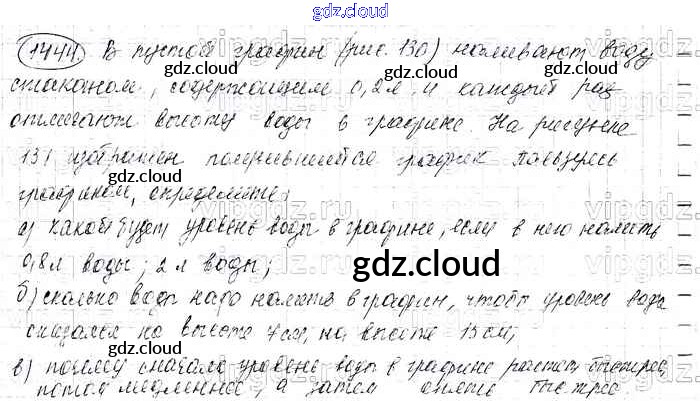 gdz.cloud
1444. В пустой графин (рис. 130) наливают воду
стаканом, содержащим 0,2 л, и каждый раз
отмечают высоту воды в графине. На рисунке
131 изображен получившийся график. Пользуясь
графиком, определите:
а) какой будет уровень воды в графине, если в него налить
0,8 л воды; 2 л воды;
б) сколько воды надо налить в графин, чтобы уровень воды
оказался на высоте 7 см, на высоте 15 см;
в) почему сначала уровень воды в графине растет быстрее,
потом медленнее, а затем опять быстрее.